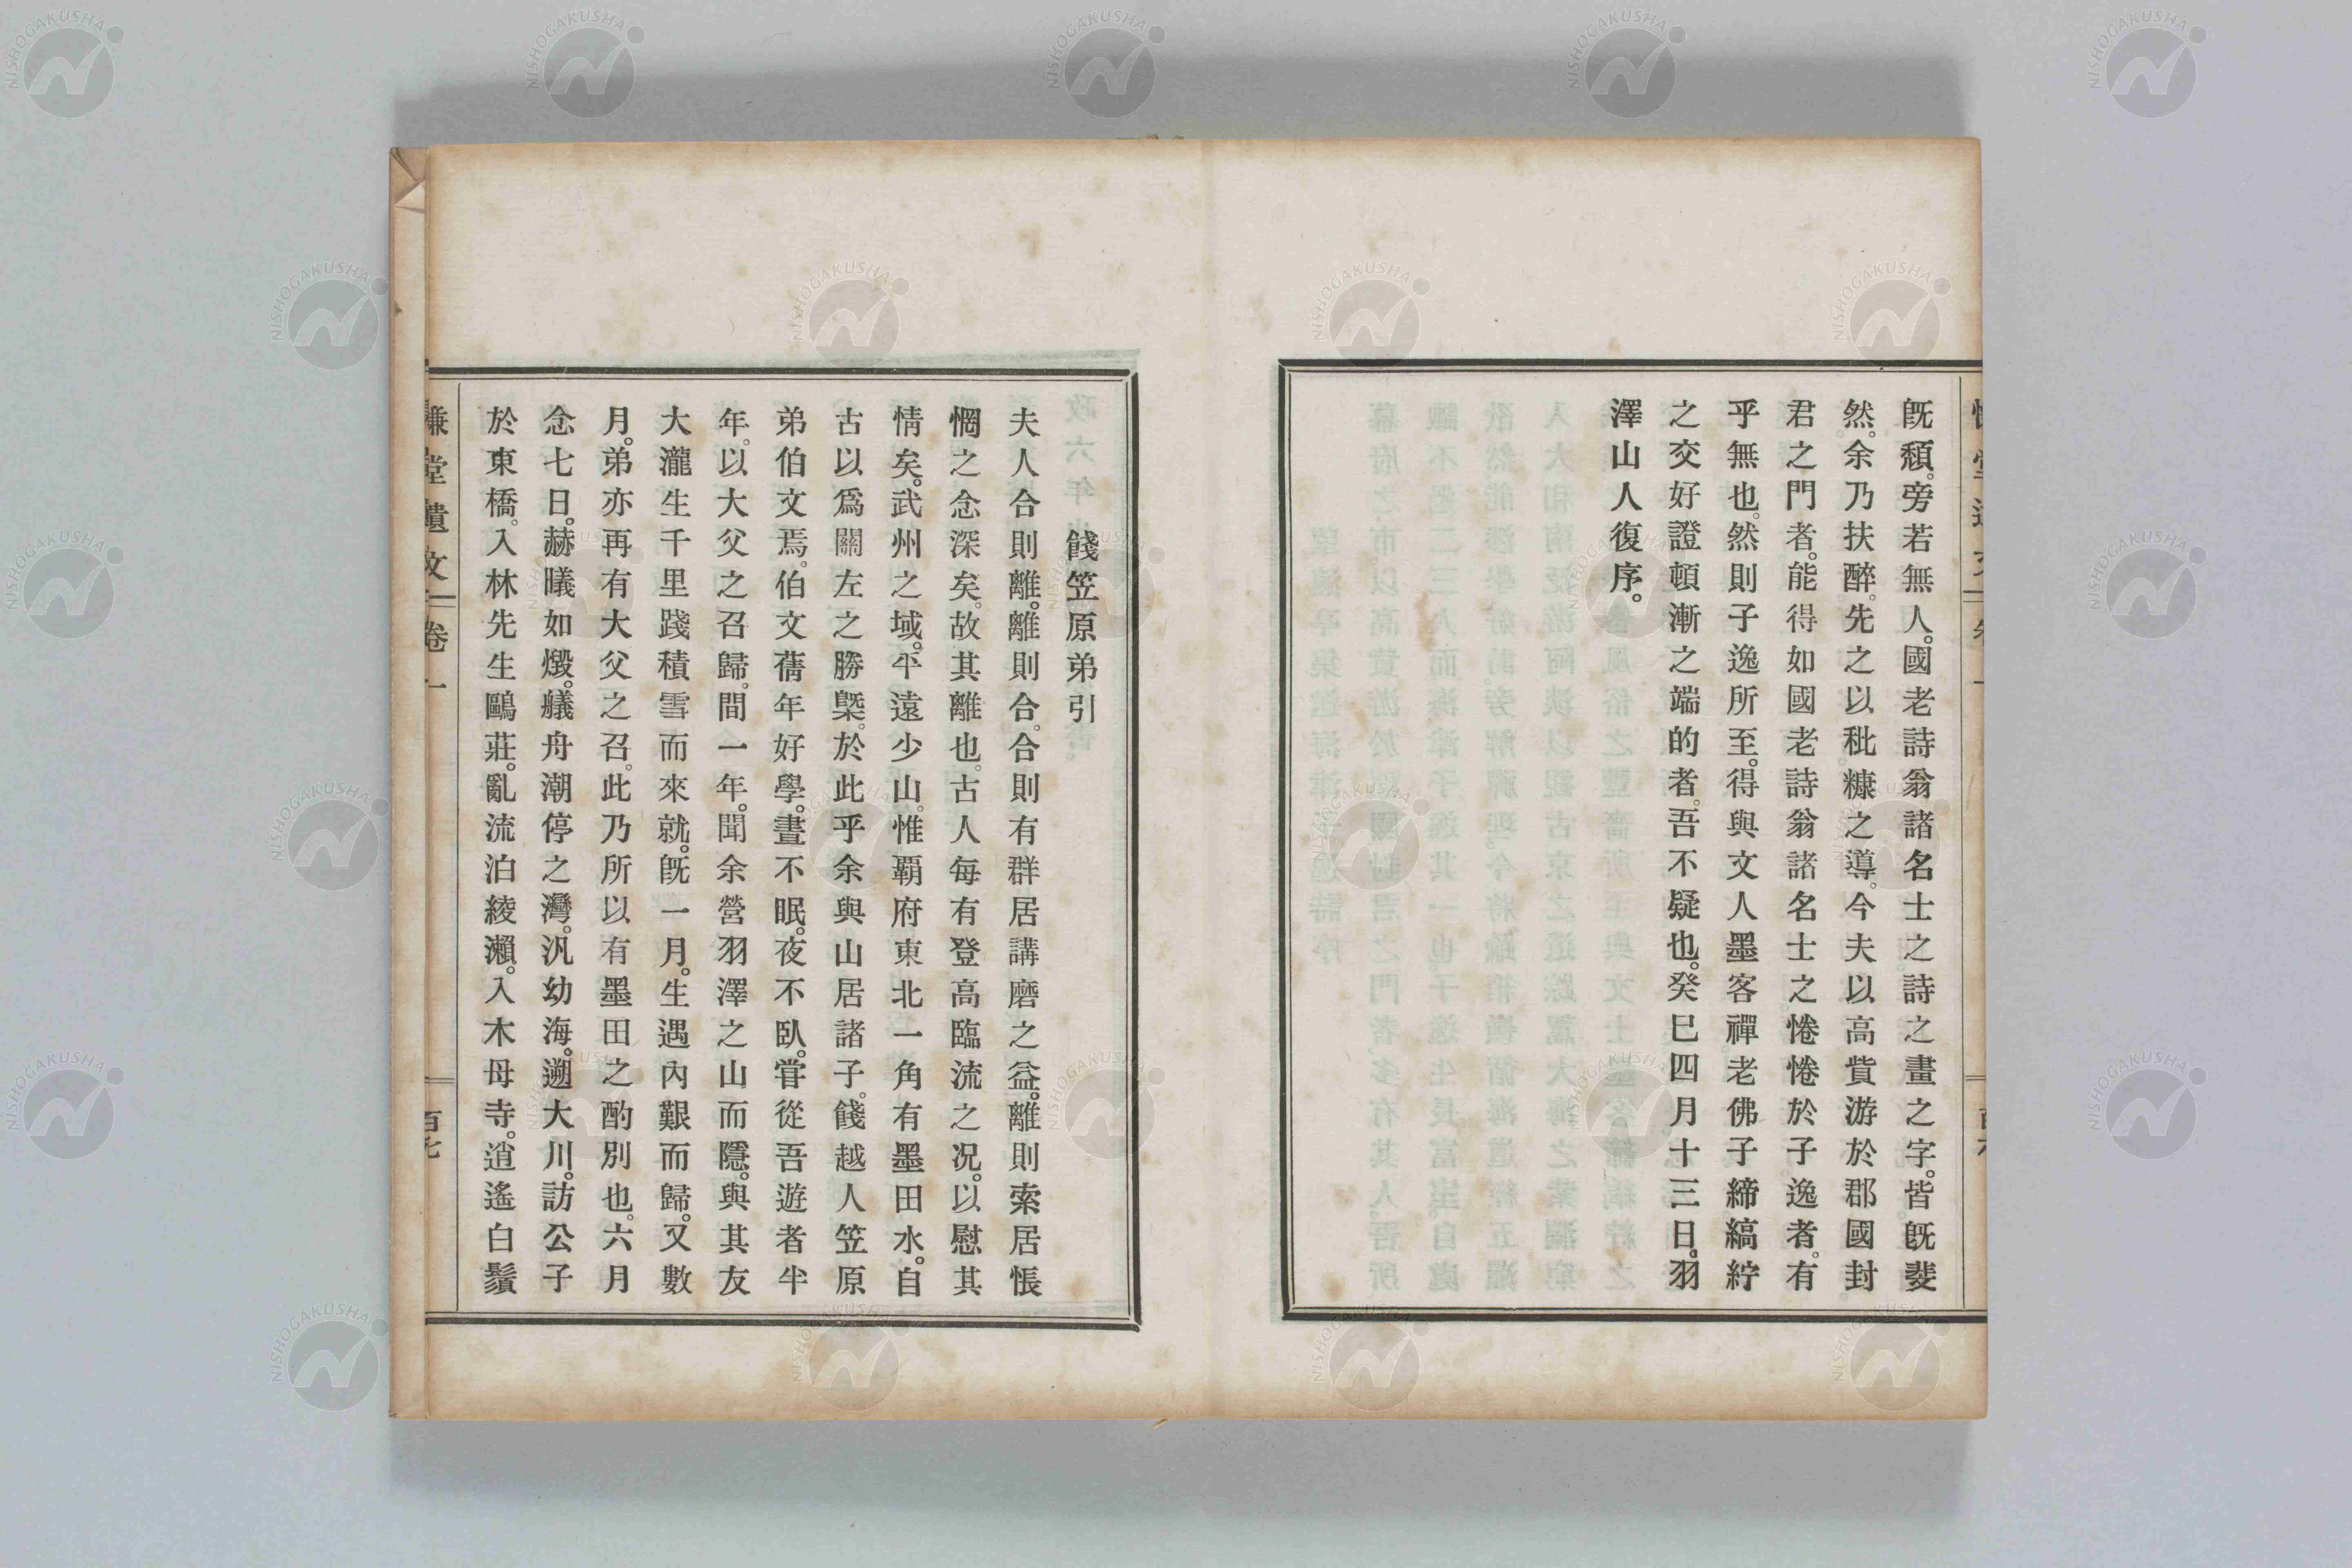 既頹。旁若無人。國老詩翁諸名士之詩之畫之字。皆既斐
然。余乃扶醉。先之以秕糠之導。今夫以高貲游於郡國封
君之門者。能得如國老詩翁諸名士之惓惓於子逸者。有
乎無也。然則子逸所至。得與文人墨客禪老佛子締縞紵
之交好證頓漸之端的者。吾不疑也。癸巳四月十三日。羽
澤山人復序。
餞笠原弟引
夫人合則離。離則合。合則有群居講磨之益。離則索居悵
惘之念深矣。故其離也。古人每有登高臨流之况。以慰其
情矣。武州之域。平遠少山。惟覇府東北一角有墨田水。自
古以爲關左之勝槩。於此乎余與山居諸子。餞越人笠原
弟伯文焉。伯文蒨年好學。晝不眠。夜不臥。甞從吾遊者半
年。以大父之召歸。間一年。聞余營羽澤之山而隱。與其友
大瀧生千里踐積雪而來就。既一月。生遇內艱而歸。又數
月。弟亦再有大父之召。此乃所以有墨田之酌別也。六月
念七日。赫曦如燬。艤舟潮停之灣。汎幼海。遡大川。訪公子
於東橋。入林先生鷗莊。亂流泊綾瀨。入木母寺。逍遙白鬚
慊堂遺文 卷一 百七
NISHOGAKUSHA